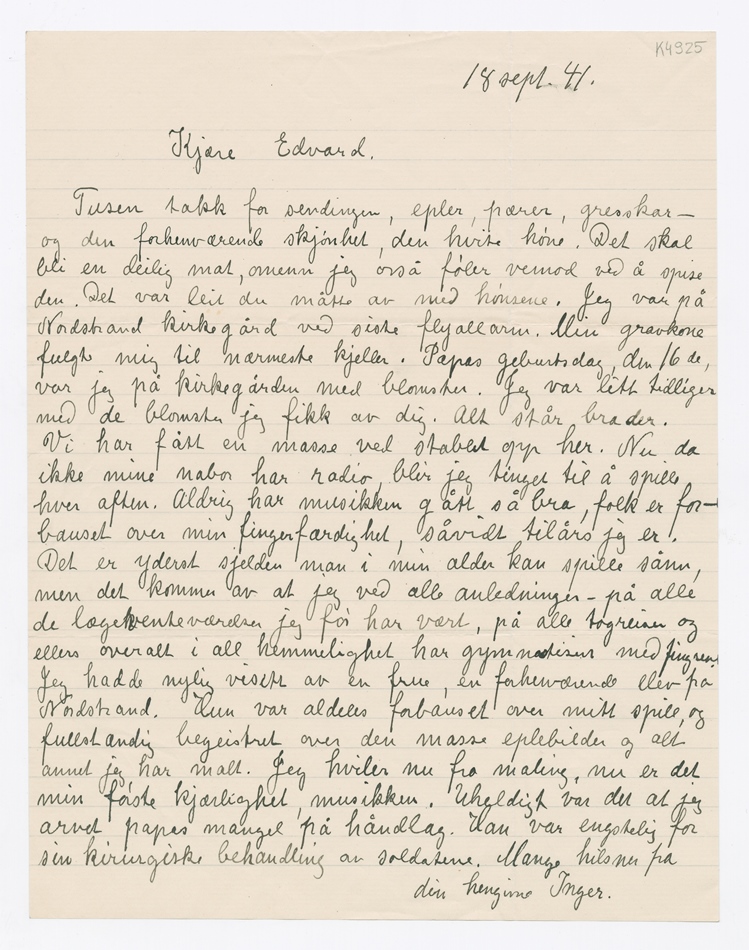 K4925
18 sept. 41.
Kjære Edvard.
Tusen takk for sendingen, epler, pærer, gresskar—
og den forhenværende skjønhet, den hvite høne. Det skal
bli en deilig mat, omenn jeg også føler vemod ved å spise
den. Det var leit du måtte av med hønsene. Jeg var på
Nordstrand kirkegård ved siste flyallarm. Min gravkone
fulgte mig til nærmeste kjeller. Papas geburtsdag, den 16 de,
var jeg på kirkegården med blomster. Jeg var litt tidligere
med de blomster jeg fikk av dig. Alt står bra der.
Vi har fått en masse ved stablet opp her. Nu da
ikke mine nabor har radio, blir jeg tinget til å spille
hver aften. Aldrig har musikken gått så bra, folk er for-
bauset over min fingerfærdighet, såvidt tilårs jeg er.
Det er yderst sjelden man i min alder kan spille sånn,
men det kommer av at jeg ved alle anledninger – på alle
de lægeventeværelser jeg før har vært, på alle togreiser og
ellers overalt i all hemmelighet har gymnatisert med fingrene
Jeg hadde nylig visitt av en frue, en forhenværende elev på
Nordstrand. Hun var aldeles forbauset over mitt spill, og
fullstændig begeistret over den masse eplebilder og alt
annet jeg har malt. Jeg hviler nu fra maling, nu er det
min første kjærlighet, musikken. Uheldigt var det at jeg
arvet papas mangel på håndlag. Han var engstelig for
sin kirurgiske behandling av soldatene. Mange hilsner fra
din hengivne Inger.